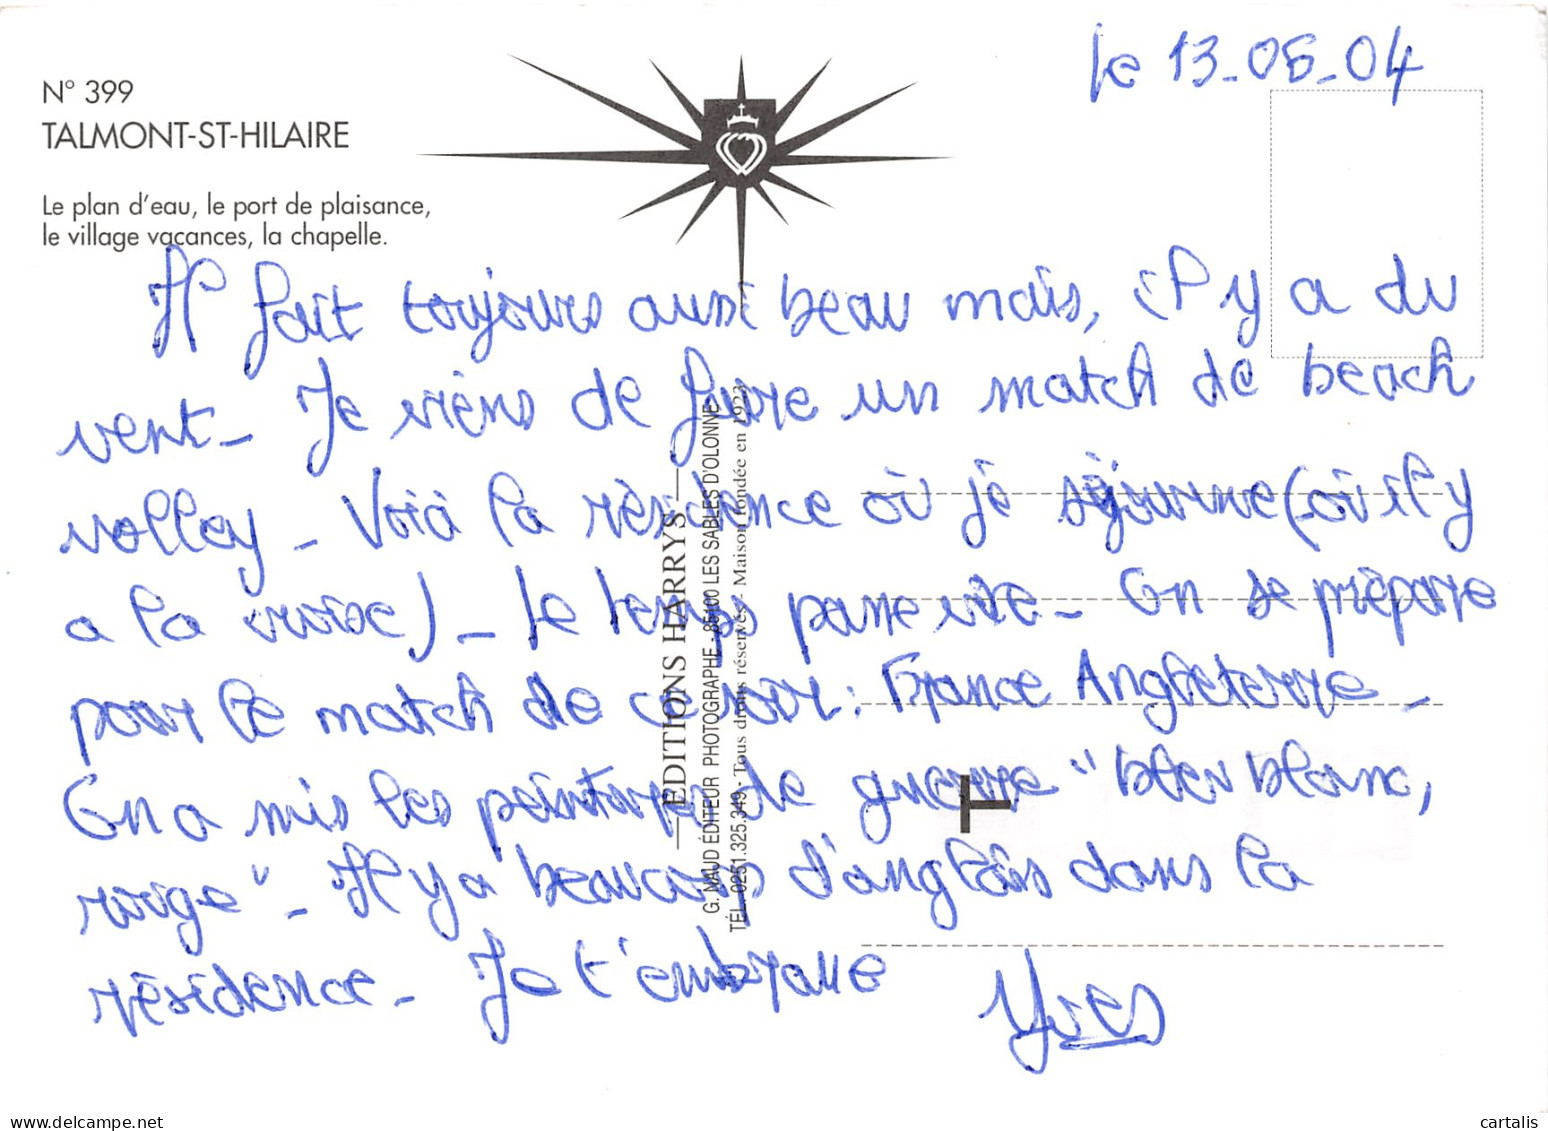 le 13-06-04
N° 399
TALMONT-ST-HILAIRE
Le plan d'eau, le port de plaisance,
le village vacances, la chapelle.
Il fait toujours aussi beau mais, il y a du
vent - Je viens de faire un match de beach
volley - Voià la résidence où je séjourne (où il y
a la croise) - Le temps passe vite - On se prépare
pour le match de ce soir : France Angleterre -
On a mis les peintures de guerre "bleu blanc,
rouge" - Il y a beaucoup d'anglais dans la
résidence - Je t'embrasse
Yves
EDITIONS HARRYS
G. NAUD ÉDITEUR PHOTOGRAPHE - 85100 LES SABLES D'OLONNE
TÉL. 0251.325.349 - Tous droits réservés - Maison fondée en 1923
delcampe.net
cartalis